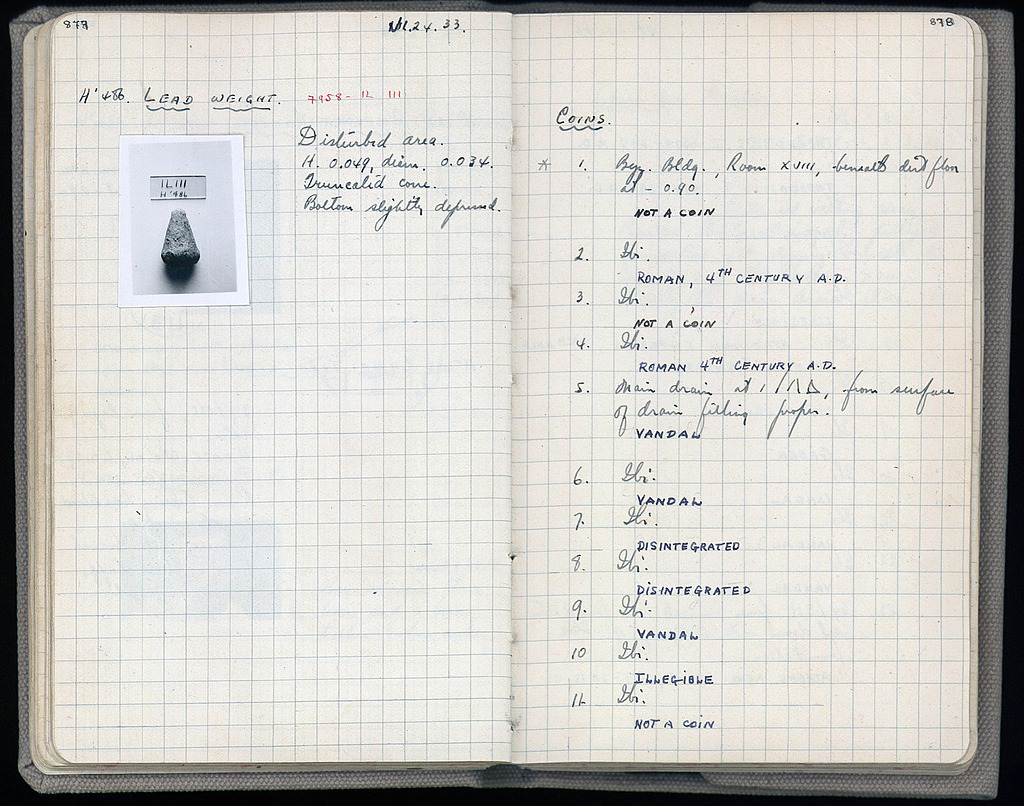 877
24. 33.
H' 486. LEAD WEIGHT. 7958 - IL 111
IL III
H'486
Disturbed area.
H. 0.049, diam. 0.034.
Truncated cone.
Bottom slightly depressed.
878
COINS.
* 1. Byz. Bldg., Room XVIII, beneath dirt floor
at - 0.90.
NOT A COIN
2. Ibi.
ROMAN, 4TH CENTURY A.D.
3. Ibi.
NOT A COIN
4. Ibi.
ROMAN 4TH CENTURY A.D.
5. Main drain at 1/ΛΔ, from surface
of drain filling proper.
VANDAL
6. Ibi.
VANDAL
7. Ibi.
DISINTEGRATED
8. Ibi.
DISINTEGRATED
9. Ibi.
VANDAL
10 Ibi.
ILLEGIBLE
11. Ibi.
NOT A COIN